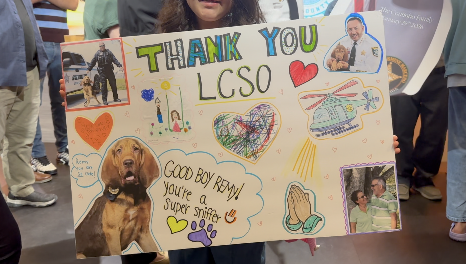 THANK YOU
LCSO
GOOD BOY REMY!
you're a
super sniffer